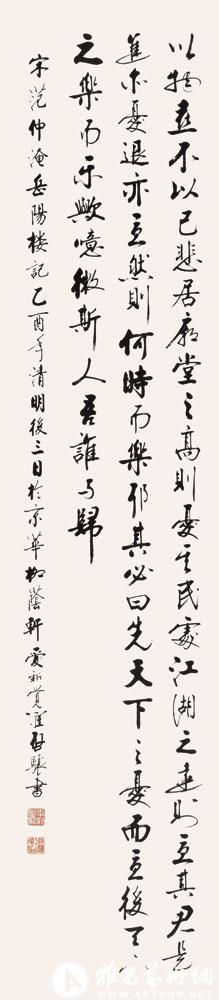 以物喜不以己悲居廟堂之高則憂其民處江湖之遠則憂其君是
進亦憂退亦憂然則何時而樂耶其必曰先天下之憂而憂後天下
之樂而樂歟噫微斯人吾誰與歸
宋范仲淹岳陽楼記乙酉年清明後三日於京華柳蔭軒愛新覺羅啟驤書
雅昌艺术网
WWW.ARTRON.NET